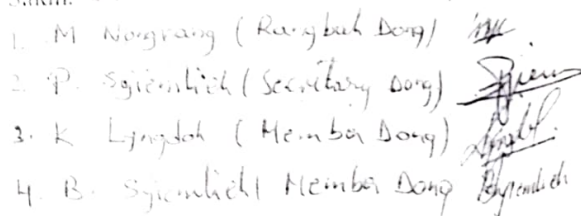 1. M Nongrang (Rangbah Dong)
2. P. Syiemlieh (Secretary Dong)
3. K Lyngdoh (Member Dong)
4. B. Syiemlieh (Member Dong Bsyiemlieh